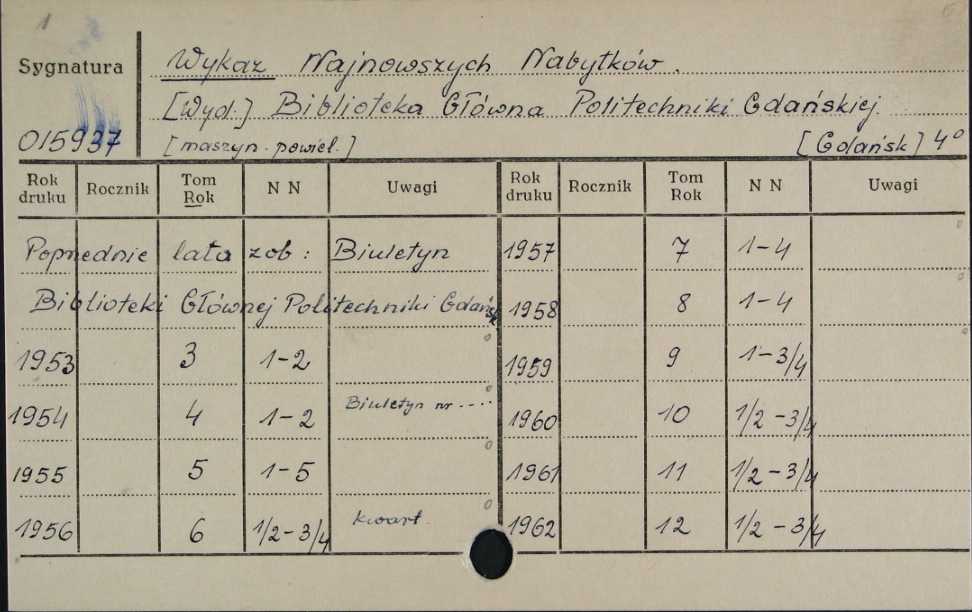 1
Sygnatura
015937
Wykaz Najnowszych Nabytków.
[Wyd.] Biblioteka Główna Politechniki Gdańskiej.
[maszyn. powiel.] [Gdańsk] 4°
Rok druku Rocznik Tom Rok N N Uwagi
Poprzednie lata zob: Biuletyn
Biblioteki Głównej Politechniki Gdańsk
1953 3 1-2
1954 4 1-2 Biuletyn nr ....
1955 5 1-5
1956 6 1/2-3/4 kwart.
Rok druku Rocznik Tom Rok N N Uwagi
1957 7 1-4
1958 8 1-4
1959 9 1-3/4
1960 10 1/2-3/4
1961 11 1/2-3/4
1962 12 1/2-3/4